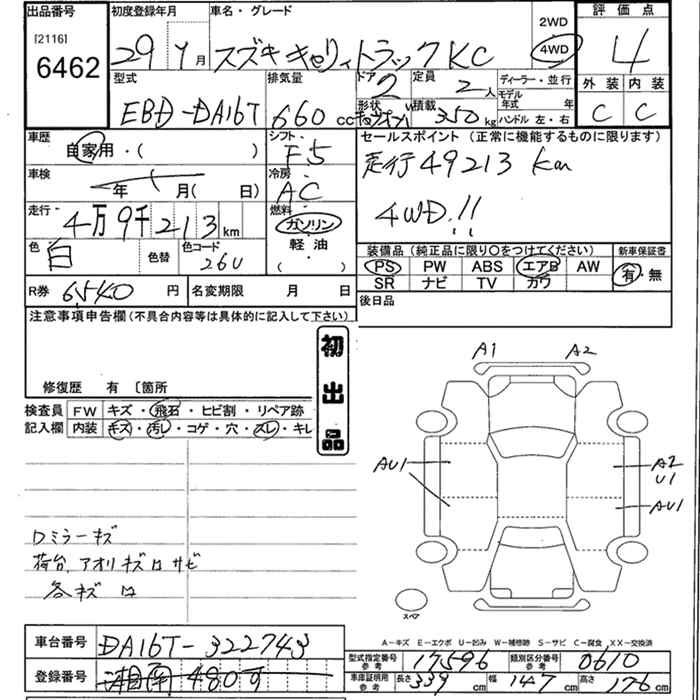 出品番号
[2116]
6462
初度登録年月
29 年 月
車名・グレード
スズキ キャリィトラック KC
2WD
4WD
評価点
4
外装 内装
C C
型式
EBD-DA16T
排気量
660 cc
ドア 2
形状
定員 2人
積載 350 kg
ディーラー・並行
モデル年式 年
ハンドル 左・右
車歴
自家用・( )
車検
年 月( 日)
走行
4万9千213 km
色
白
色替
色コード
26U
シフト
F5
冷房
AC
燃料
ガソリン
軽油
( ・ )
セールスポイント(正常に機能するものに限ります)
走行49213 km
4WD!!
装備品(純正品に限り○をつけてください)
PS PW ABS エアB AW
SR ナビ TV カワ
新車保証書
有・無
後日品
R券 6540 円
名変期限 月 日
注意事項申告欄(不具合内容等は具体的に記入して下さい)
修復歴 有 〔箇所
初出品
検査員記入欄
FW キズ・飛石・ヒビ割・リペア跡
内装 キズ・汚レ・コゲ・穴・スレ・キレ
A1 A2
AU1
A2
U1
AU1
ロミラーキズ
荷台、アオリキズ ロ サビ
各キズ ロ
スペア
A-キズ E-エクボ U-凹み W-補修跡 S-サビ C-腐食 XX-交換済
車台番号 DA16T-322743
登録番号 湘南 480
型式指定番号 参考 17596
類別区分番号 参考 0610
車庫証明用 参考 長さ 339 cm 幅 147 cm 高さ 176 cm